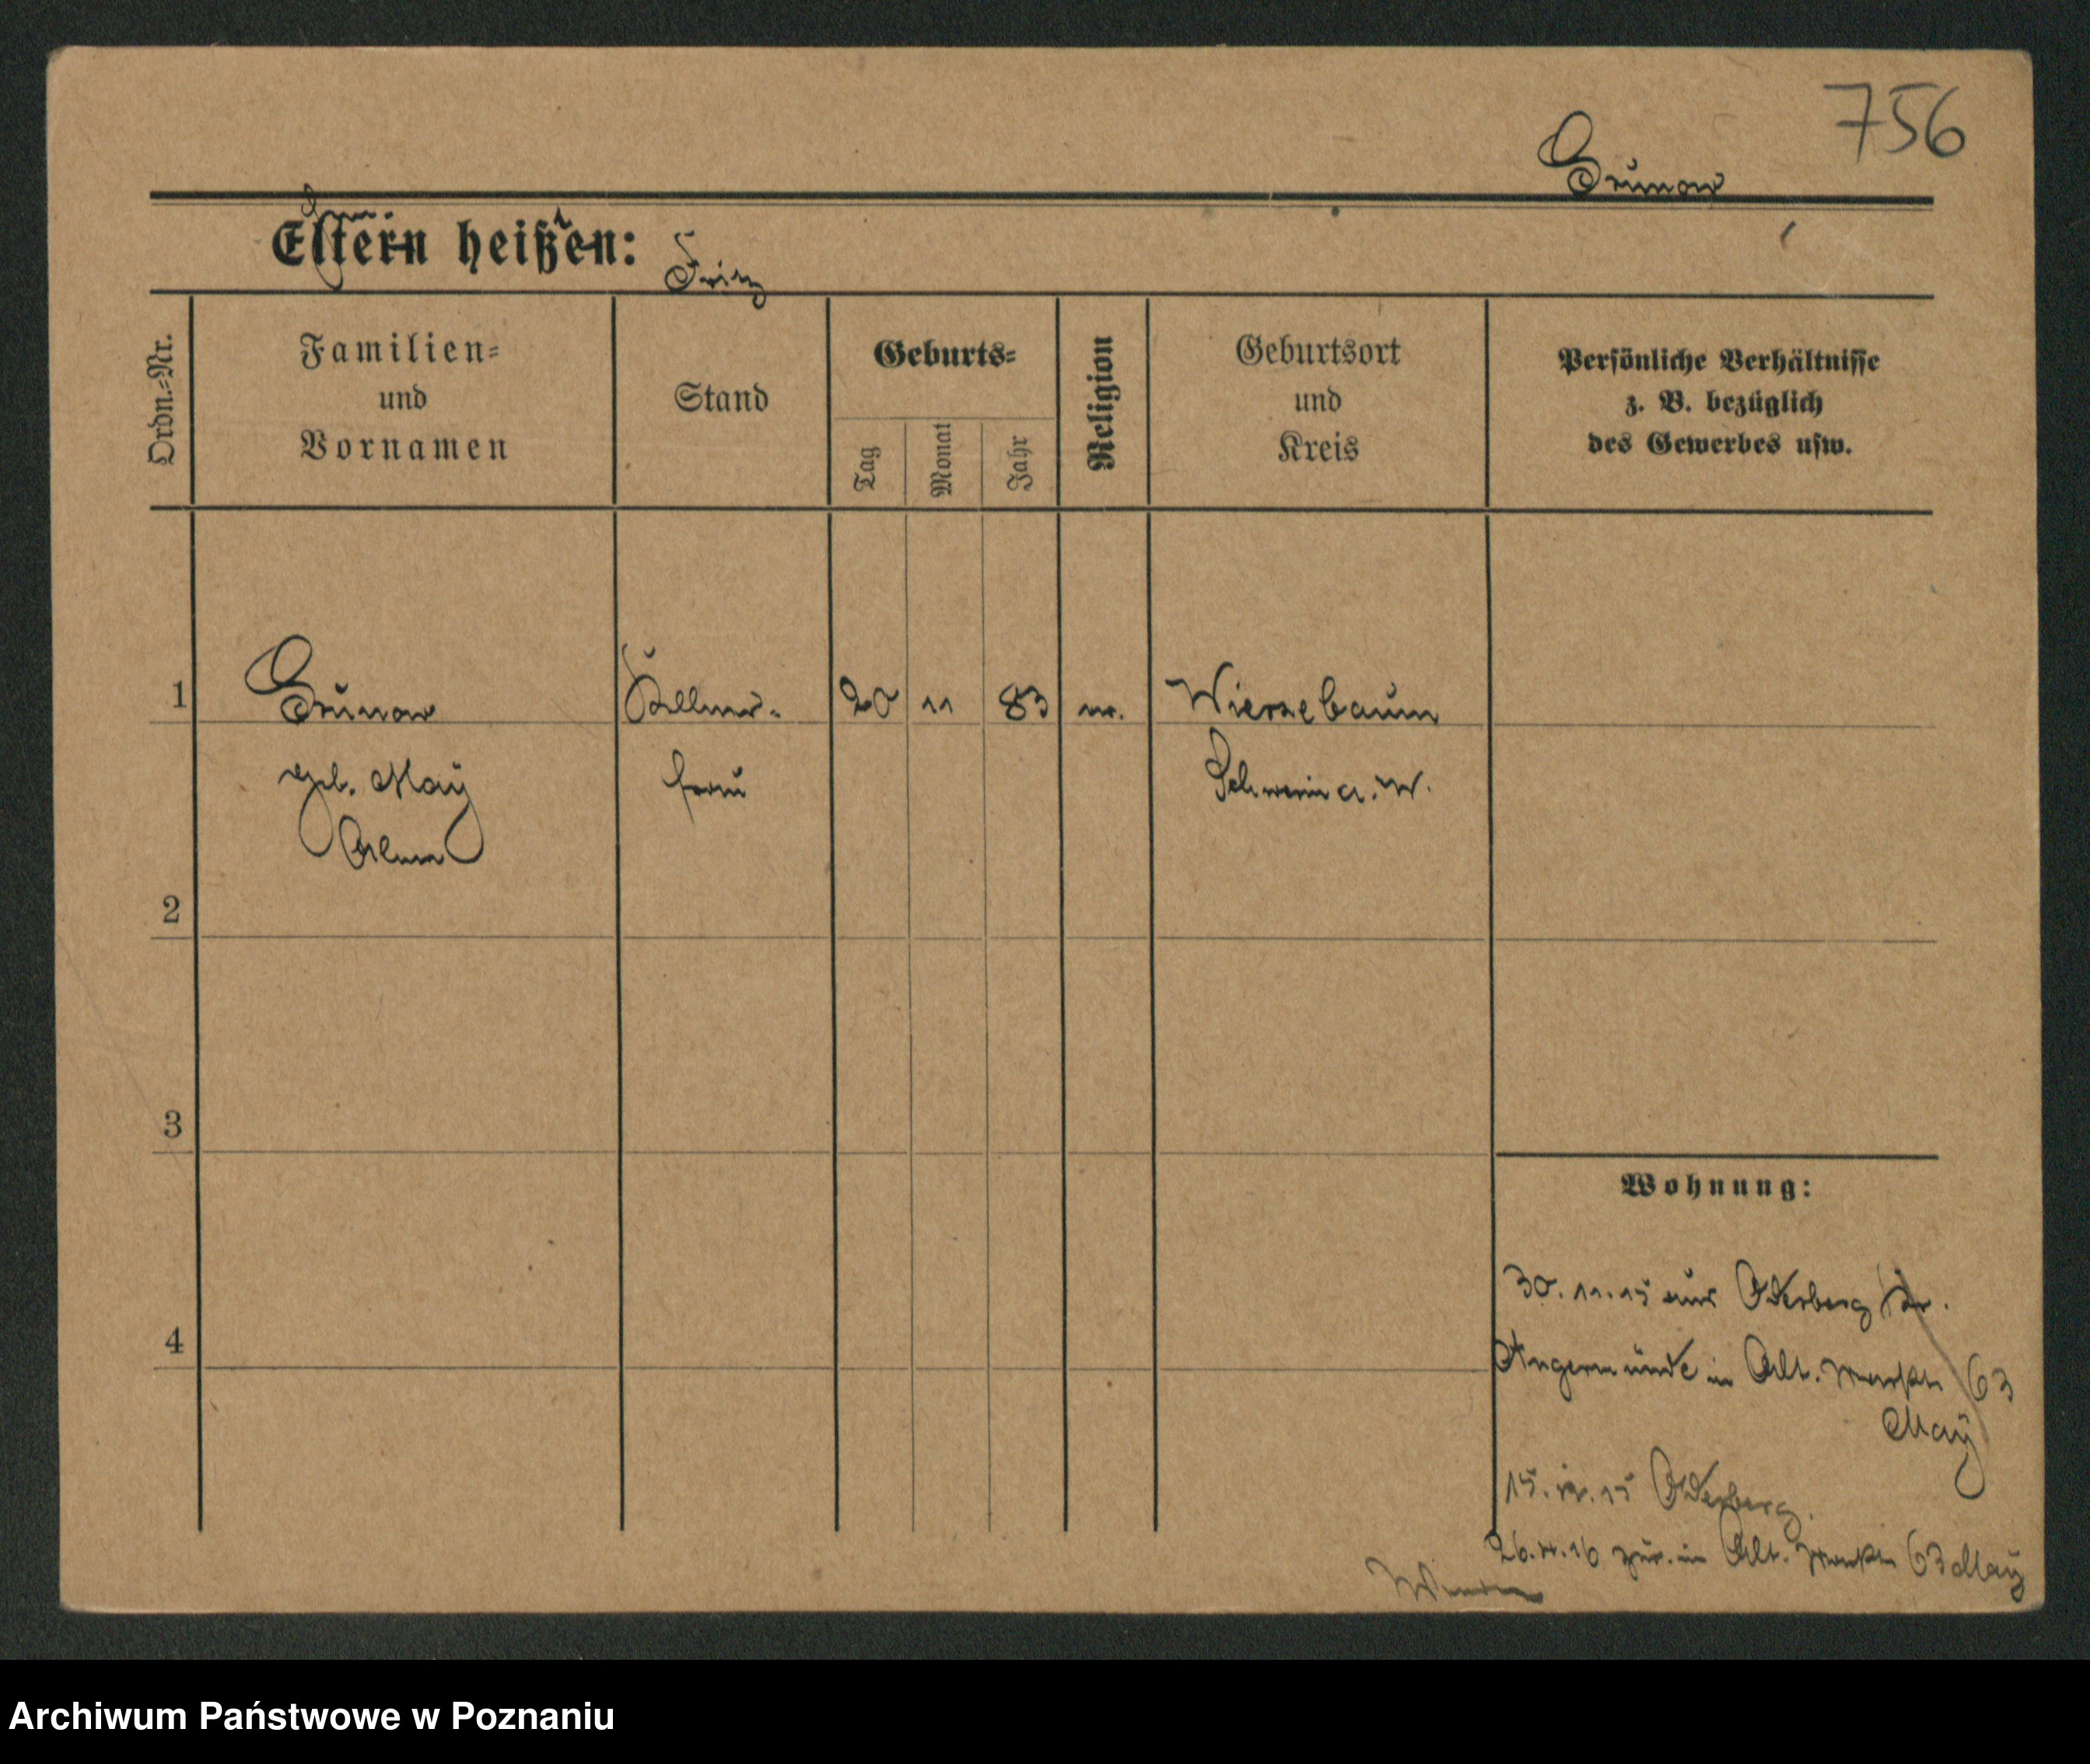 756
Grunow
Eltern heißen:
Fritz
Ordn.-Nr.
Familien-
und
Vornamen
Stand
Geburts-
Tag
Monat
Jahr
Religion
Geburtsort
und
Kreis
Persönliche Verhältnisse
z. B. bezüglich
des Gewerbes usw.
1 Grunow Kellner- 20 11 83 Wierzebaum
geb. May frau Schwerin a. W.
2
3
4
Wohnung:
30. 11. 15 aus Oderberg Kr.
Angermünde in Alt. Markt 63
May
15. 12. 15 Oderberg.
26. 16 zur. in Alt. Markt 63 May